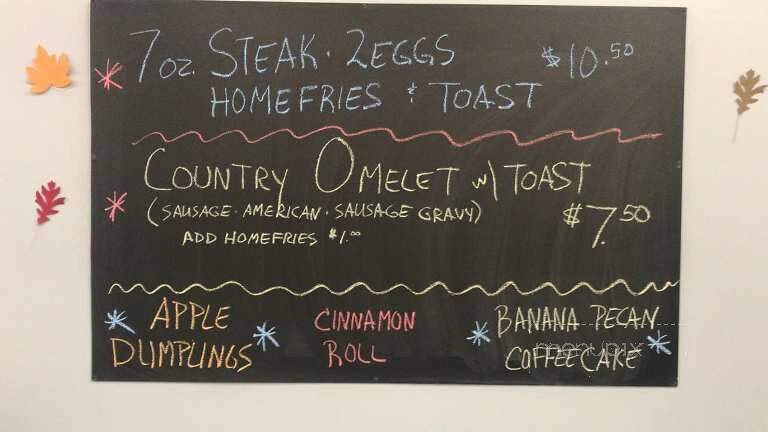 7oz. STEAK · 2EGGS $10.50
HOMEFRIES & TOAST
COUNTRY OMELET w/ TOAST
(SAUSAGE · AMERICAN · SAUSAGE GRAVY) $7.50
ADD HOMEFRIES $1.00
APPLE DUMPLINGS
CINNAMON ROLL
BANANA PECAN COFFEECAKE
menupix